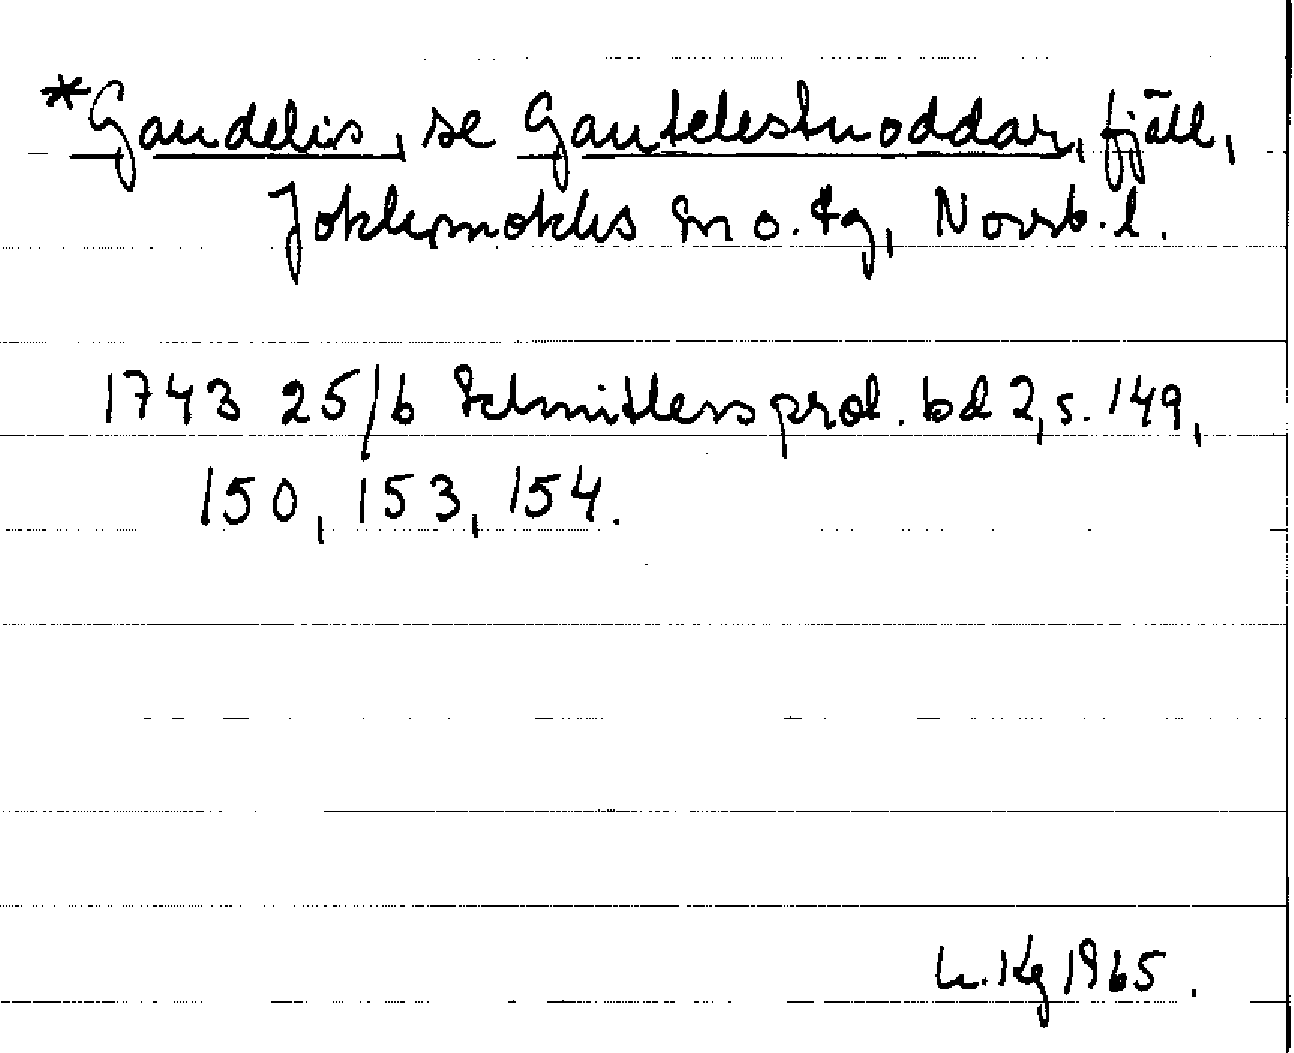 *Gaudelis, se Gautelestnoddar, fjäll,
Jokkmokks sn o. tg, Norrb. l.
1743 25/6 Schnitlers prot. bd 2, s. 149,
150, 153, 154.
1965.